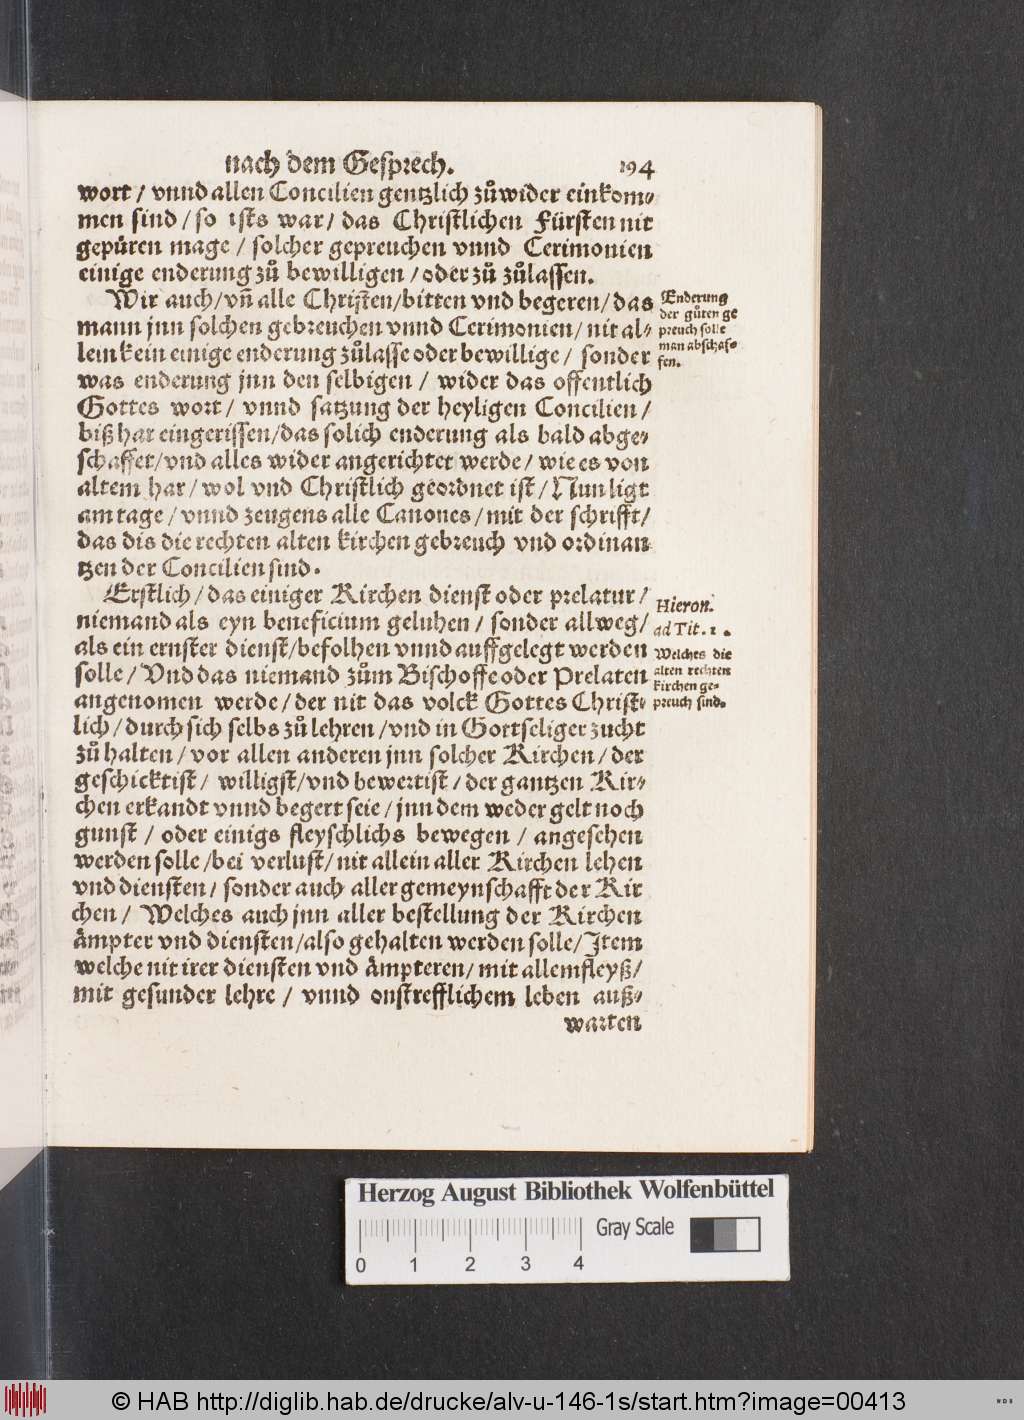 nach dem Gesprech. 194
wort / vnnd allen Concilien gentzlich zůwider einkom⸗
men sind / so ists war / das Christlichen Fürsten nit
gepüren mage / solcher gepreuchen vnnd Cerimonien
einige enderung zů bewilligen / oder zů zůlassen.
Wir auch / vñ alle Christen / bitten vnd begeren / das
mann jnn solchen gebreuchen vnnd Cerimonien / nit al⸗
lein kein einige enderung zůlasse oder bewillige / sonder
was enderung jnn den selbigen / wider das offentlich
Gottes wort / vnnd satzung der heyligen Concilien /
biß har eingerissen / das solich enderung als bald abge⸗
schaffet / vnd alles wider angerichtet werde / wie es von
altem har / wol vnd Christlich geordnet ist / Nun ligt
am tage / vnnd zeugens alle Canones / mit der schrifft /
das dis die rechten alten kirchen gebreuch vnd ordinan
tzen der Concilien sind.
Enderung
der gůten ge
preuch solle
man abschaf⸗
fen.
Erstlich / das einiger Kirchen dienst oder prelatur /
niemand als eyn beneficium geluhen / sonder allweg /
als ein ernster dienst / befolhen vnnd auffgelegt werden
solle / Vnd das niemand zům Bischoffe oder Prelaten
angenomen werde / der nit das volck Gottes Christ⸗
lich / durch sich selbs zů lehren / vnd in Gottseliger zucht
zů halten / vor allen anderen jnn solcher Kirchen / der
geschicktist / willigst / vnd bewertist / der gantzen Kir⸗
chen erkandt vnnd begert seie / jnn dem weder gelt noch
gunst / oder einigs fleyschlichs bewegen / angesehen
werden solle / bei verlust / nit allein aller Kirchen lehen
vnd diensten / sonder auch aller gemeynschafft der Kir
chen / Welches auch jnn aller bestellung der Kirchen
ämpter vnd diensten / also gehalten werden solle / Item
welche nit irer diensten vnd ämpteren / mit allem fleyß /
mit gesunder lehre / vnnd onstrefflichem leben auß⸗
warten
Hieron.
ad Tit. 1.
Welches die
alten rechten
Kirchen ge⸗
preuch sind.
Herzog August Bibliothek Wolfenbüttel
Gray Scale
0 1 2 3 4
© HAB http://diglib.hab.de/drucke/alv-u-146-1s/start.htm?image=00413